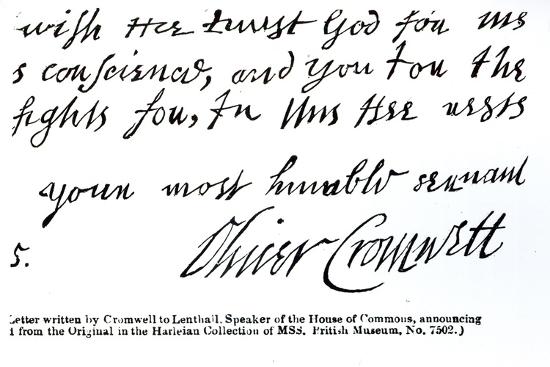 wish Hee trust God for his
s conscience, and you for the
fights for, In this Hee rests
your most humble servant
5. Oliver Cromwell
Letter written by Cromwell to Lenthall, Speaker of the House of Commons, announcing
from the Original in the Harleian Collection of MSS. British Museum, No. 7502.)